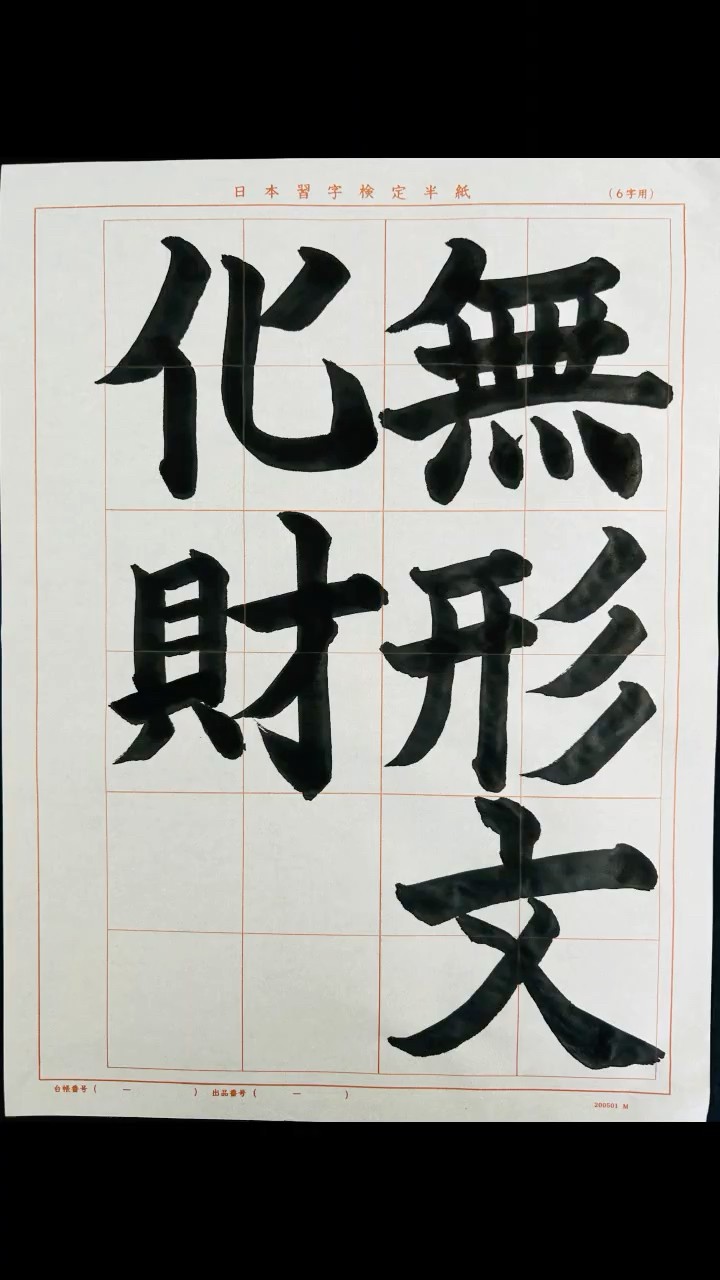 日本習字検定半紙
(6字用)
無形文
化財
台帳番号(　ー　)　出品番号(　ー　)
200501 M